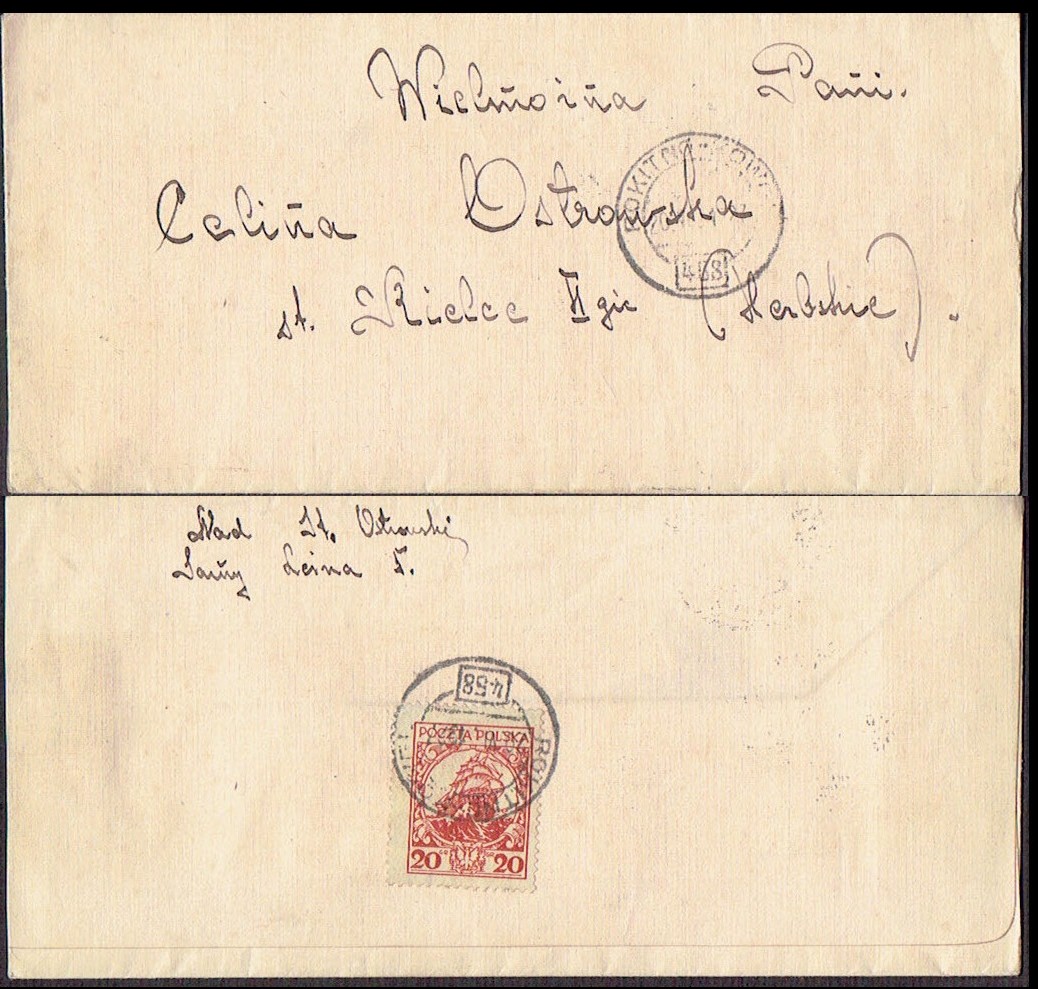 Wielmoźna Pani.
Celina Ostrowska
st. Kielce II gie (Herbskie).
4-58
Nad St. Ostrowski
Sarny Leśna 5.
4-58
POCZTA POLSKA
20 GR GR 20